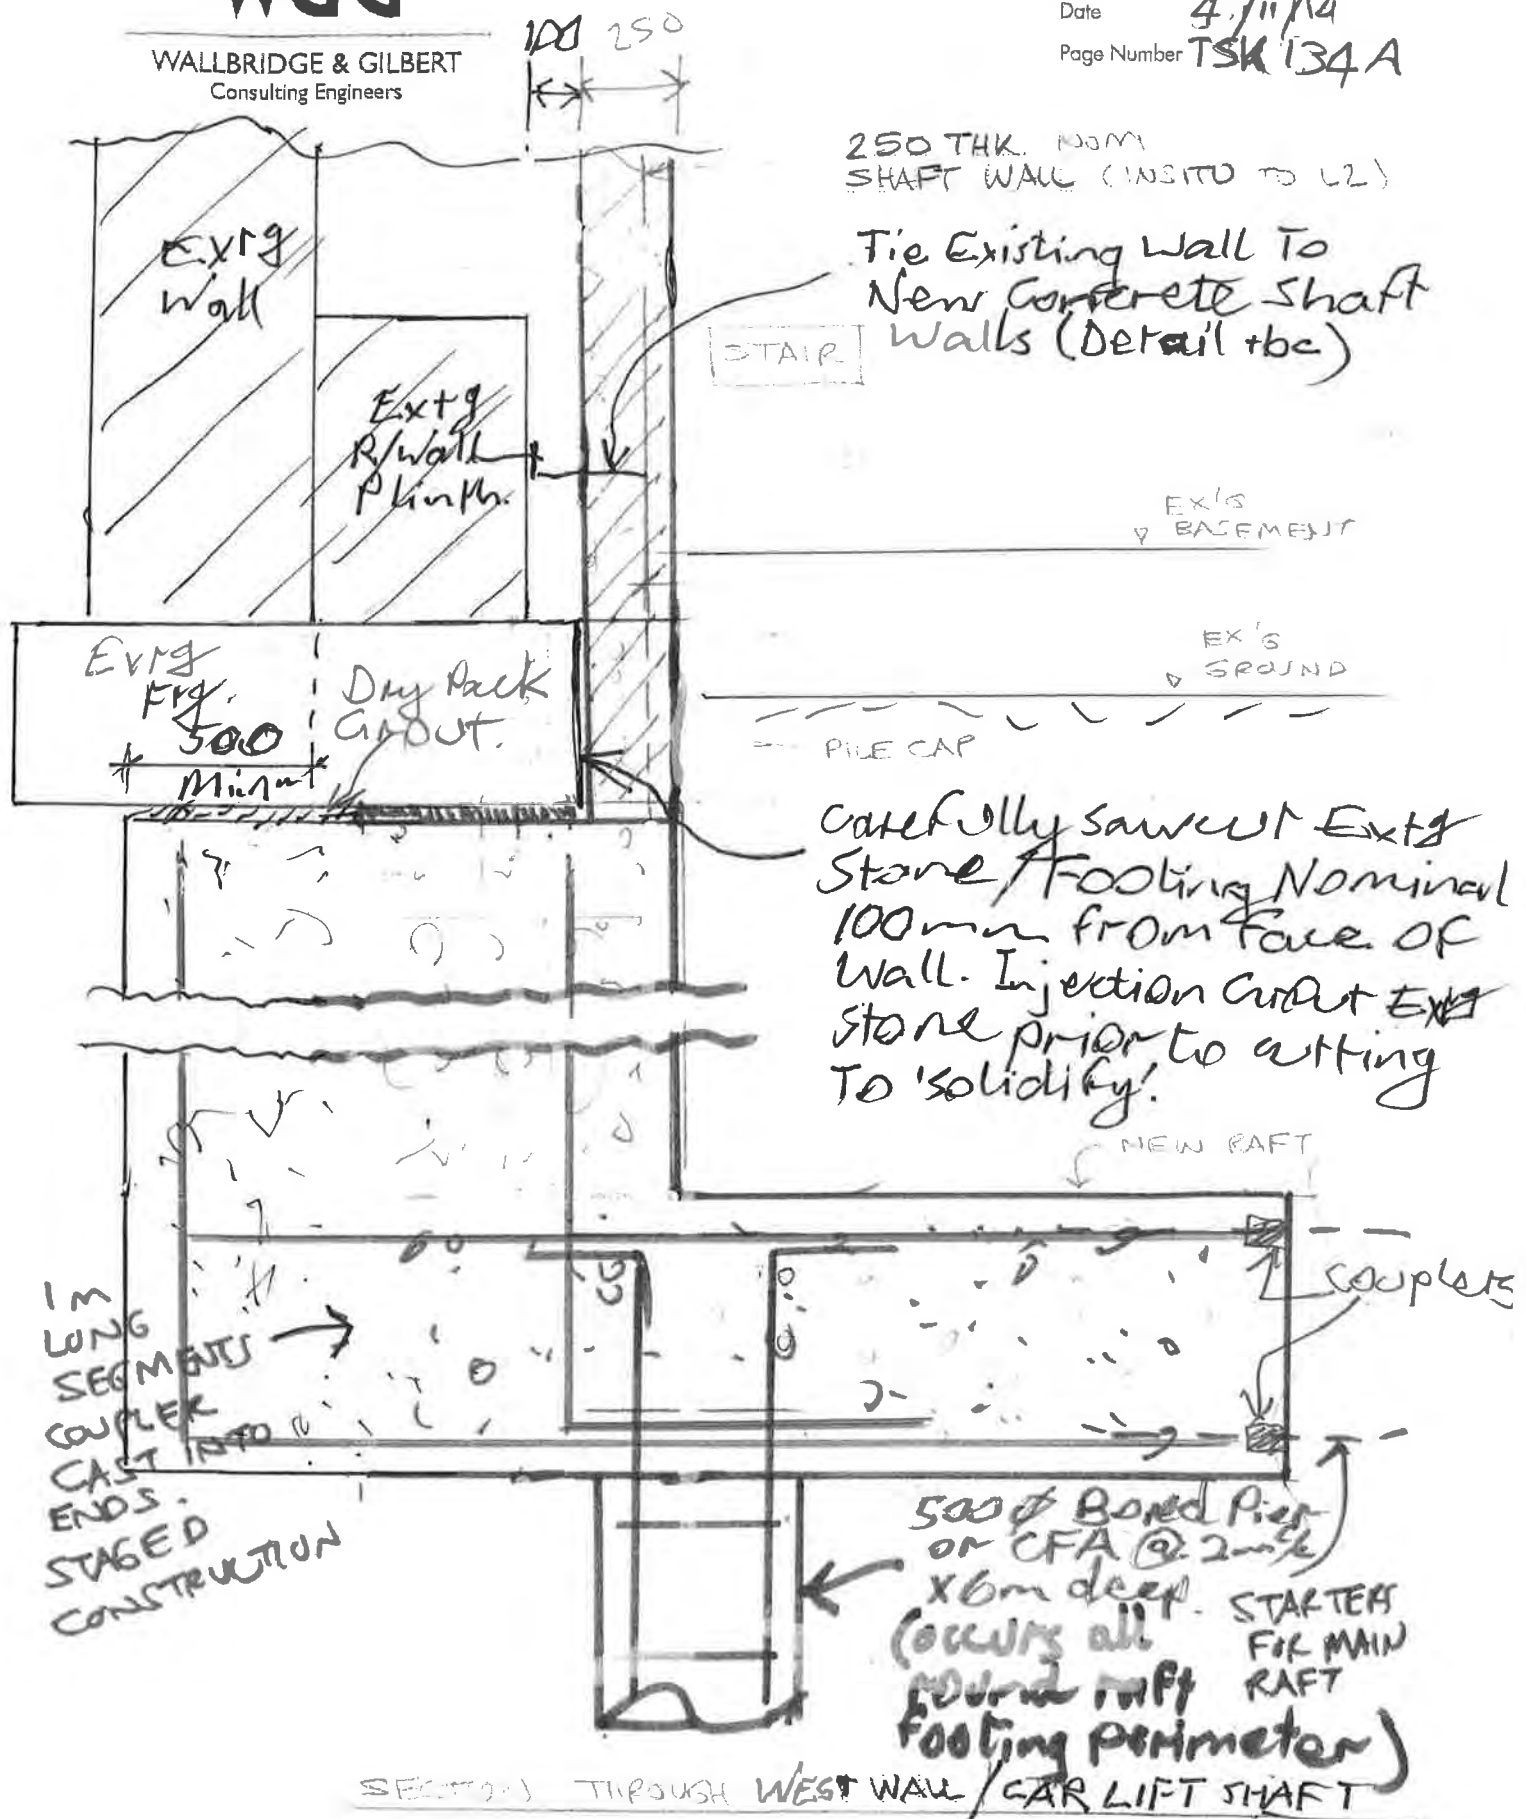 WALLBRIDGE & GILBERT
Consulting Engineers
Date 4/11/14
Page Number TSK 134 A
100 250
250 THK. NOM
SHAFT WALL (INSITU TO L2)
Tie Existing Wall To
New Concrete Shaft
Walls (Detail tbc)
STAIR
Extg
Wall
Extg
R/Wall
Plinth.
EX'G
BASEMENT
EX'G
GROUND
PILE CAP
Extg
Ftg.
500
Min
Dry Pack
Grout.
Carefully Sawcut Extg
Stone/Footing Nominal
100mm from Face OF
Wall. Injection Grout Extg
Stone prior to cutting
To 'solidify'.
NEW RAFT
couplers
1m
LONG
SEGMENTS
COUPLER
CAST INTO
ENDS.
STAGED
CONSTRUCTION
500 Ø Bored Pier
or CFA @ 2m c/c
x 6m deep.
(occurs all
round raft
Footing perimeter)
STARTERS
FOR MAIN
RAFT
SECTION THROUGH WEST WALL / CAR LIFT SHAFT